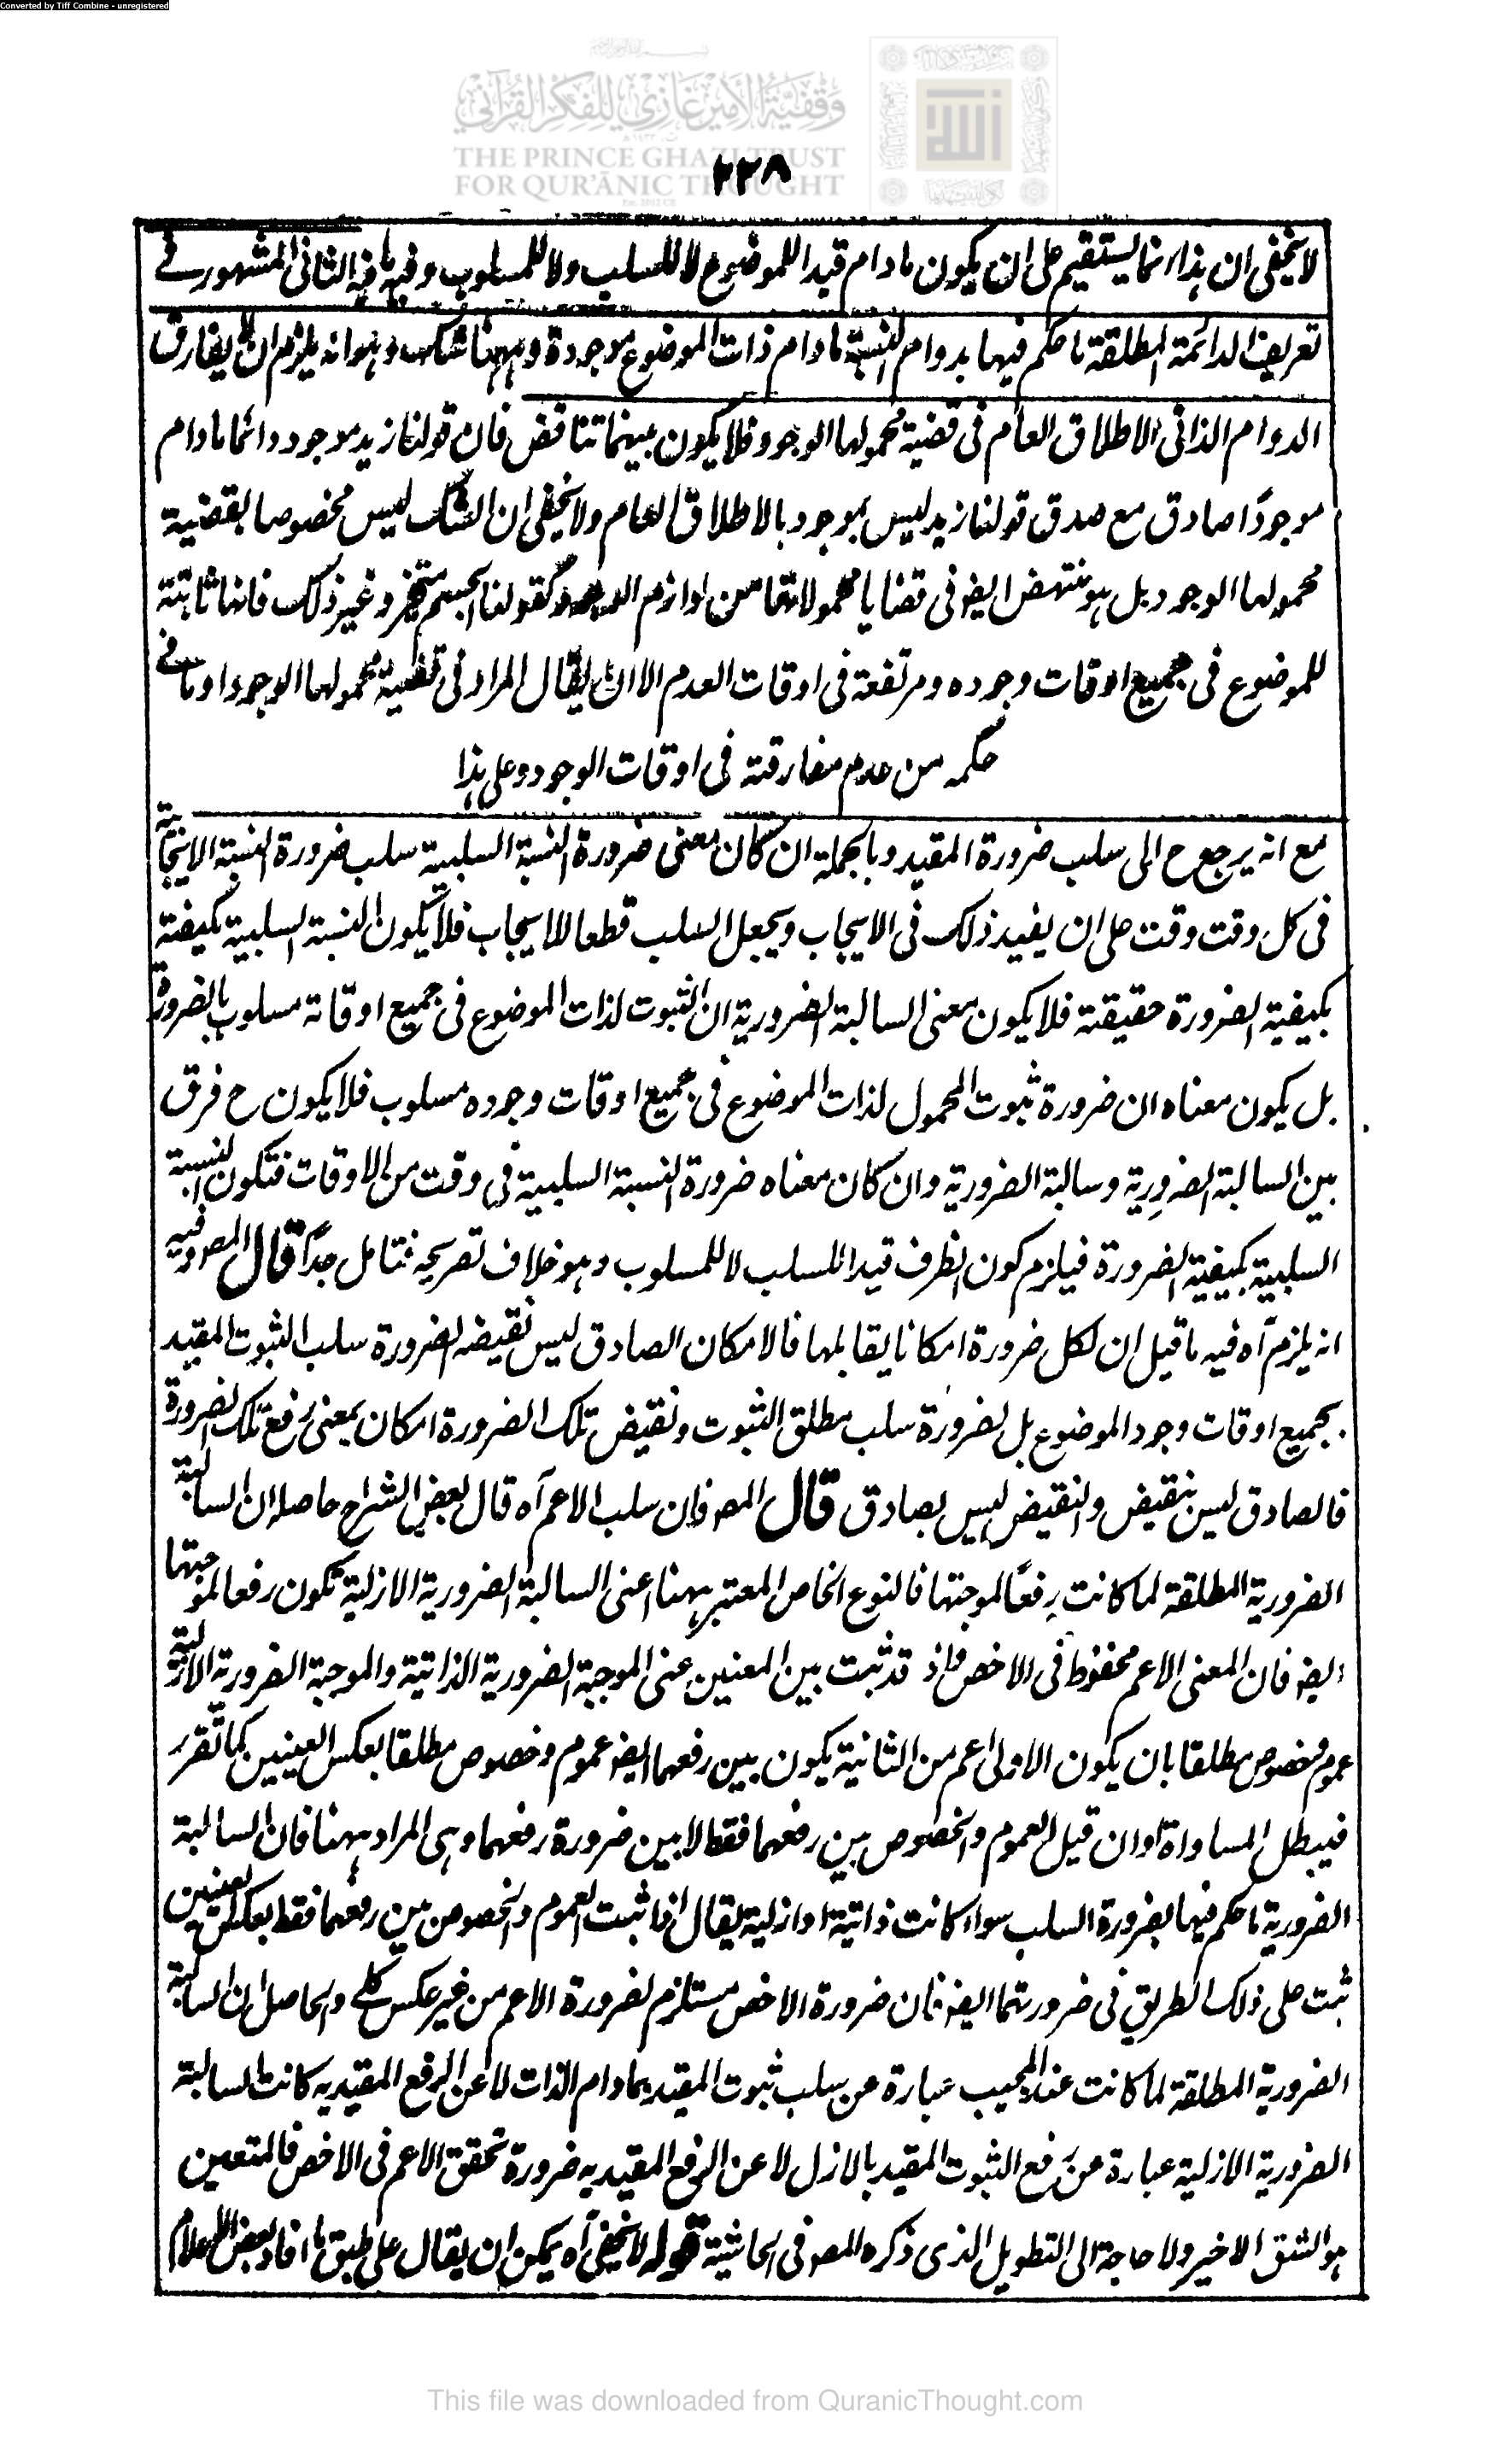 Converted by Tiff Combine - unregistered
وقفية الأمير غازي للفكر القرآني
THE PRINCE GHAZI TRUST
FOR QUR'ĀNIC THOUGHT
٢٢٨
لا يخفى ان هذا انما يستقيم على ان يكون مادام قيدا للموضوع لا للسلب ولا للمسلوب وفيه ما فيه الثانى المشهور فى
تعريف الدائمة المطلقة ما حكم فيها بدوام النسبة مادام ذات الموضوع موجودة وههنا شك وهو انه يلزم ان لا يفارق
الدوام الذاتى الاطلاق العام فى قضية محمولها الوجود فلا يكون بينهما تناقض فان قولنا زيد موجود دائما مادام
موجودًا صادق مع صدق قولنا زيد ليس بموجود بالاطلاق العام ولا يخفى ان الشك ليس مخصوصا بقضية
محمولها الوجود بل هو منتهض ايضا فى قضايا محمولاتها من لوازم الوجود كقولنا الجسم متحيز وغير ذلك فانها ثابتة
للموضوع فى جميع اوقات وجوده ومرتفعة فى اوقات العدم الا ان يقال المراد فى قضية محمولها الوجود او ما فى
حكمه من عدم مفارقته فى اوقات الوجود وعلى هذا
مع انه يرجع ح الى سلب ضرورة المقيد وبالجملة ان كان معنى ضرورة النسبة السلبية سلب ضرورة النسبة الايجابية
فى كل وقت وقت على ان يفيد ذلك فى الايجاب ويجعل السلب قطعا للايجاب فلا يكون النسبة السلبية مكيفة
بكيفية الضرورة حقيقة فلا يكون معنى السالبة الضرورية ان الثبوت لذات الموضوع فى جميع اوقاته مسلوب بالضرورة
بل يكون معناه ان ضرورة ثبوت المحمول لذات الموضوع فى جميع اوقات وجوده مسلوب فلا يكون ح فرق
بين السالبة الضرورية وسالبة الضرورية وان كان معناه ضرورة النسبة السلبية فى وقت من الاوقات فتكون النسبة
السلبية بكيفية الضرورة فيلزم كون الظرف قيدا للسلب لا للمسلوب وهو خلاف تصريحه فتامل جدًا قال المص وفيه
انه يلزم آه فيه ما قيل ان لكل ضرورة امكانا يقابلها فالامكان الصادق ليس نقيضه لضرورة سلب الثبوت المقيد
بجميع اوقات وجود الموضوع بل لضرورة سلب مطلق الثبوت ونقيض تلك الضرورة امكان بمعنى رفع تلك الضرورة
فالصادق ليس بنقيض والنقيض ليس بصادق قال المص فان سلب الاعم آه قال بعض الشراح حاصله ان السالبة
الضرورية المطلقة لما كانت رفعًا لموجبتها فالنوع الخاص المعتبر ههنا اعنى السالبة الضرورية الازلية تكون رفعا لموجبتها
ايضا فان المعنى الاعم محفوظ فى الاخص واذ قد ثبت بين المعنيين اعنى الموجبة الضرورية الذاتية والموجبة الضرورية الازلية
عموم وخصوص مطلقا بان يكون الاولى اعم من الثانية يكون بين رفعهما ايضا عموم وخصوص مطلقا بعكس العينين كما تقرر
فيبطل المساواة وان قيل العموم والخصوص بين رفعهما فقط لا بين ضرورة رفعهما وهى المراد ههنا فان السالبة
الضرورية ما حكم فيها بضرورة السلب سواء كانت ذاتية او ازلية يقال اذا ثبت العموم والخصوص بين رفعهما فقط بعكس العينين
ثبت على ذلك الطريق فى ضرورتهما ايضا فان ضرورة الاخص مستلزم لضرورة الاعم من غير عكس كلى والحاصل ان السالبة
الضرورية المطلقة لما كانت عند المجيب عبارة عن سلب ثبوت المقيد بمادام الذات لا عن الرفع المقيد به كانت السالبة
الضرورية الازلية عبارة عن رفع الثبوت المقيد بالازل لا عن الرفع المقيد به ضرورة تحقق الاعم فى الاخص فالمتعين
هو الشق الاخير ولا حاجة الى التطويل الذى ذكره المص فى الحاشية قوله لا يخفى آه يمكن ان يقال على طبق ما افاد بعض الاعلام
This file was downloaded from QuranicThought.com